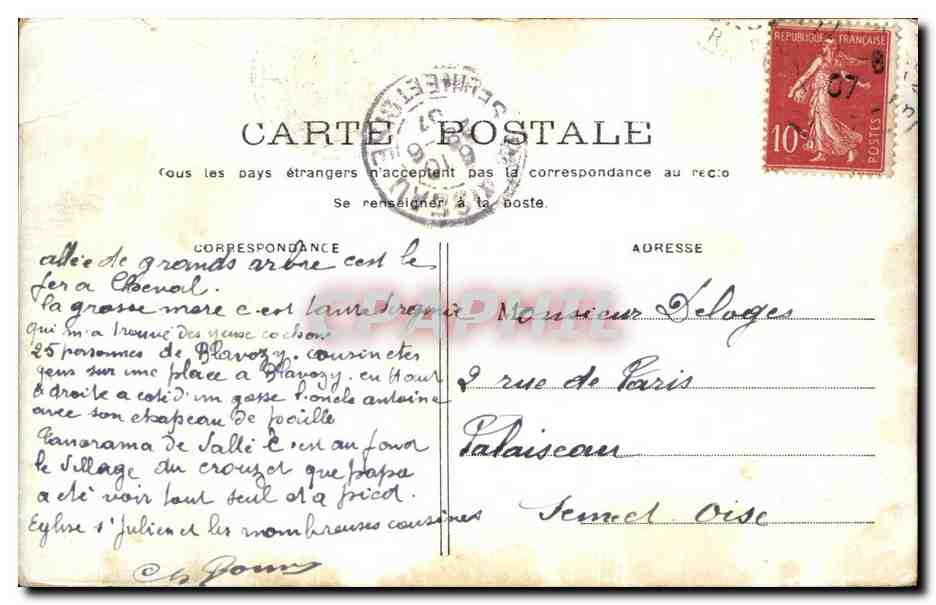 REPUBLIQUE FRANÇAISE
10c
POSTES
07
8
CARTE POSTALE
Tous les pays étrangers n'acceptent pas la correspondance au recto
Se renseigner à la poste.
PALAISEAU
SEINE ET OISE
CORRESPONDANCE
allée de grands arbre c'est le
fer a Cheval.
la grosse mere c'est
qui m'a trouvé des yeuse cochon
25 personnes de Blavozy. cousin etc
gens sur une place a Blavozy. en Haut
a droite a coté d'un gosse l'oncle antoine
avec son chapeau de paille
Panorama de Vallé C'est au fond
le Village du crouzet que papa
a été voir tout seul et a picot.
Eglise s' Julien et les nombreuses cousines
ADRESSE
Monsieur Deloges
2 rue de Paris
Palaiseau
Seine et Oise
CPAPHIL